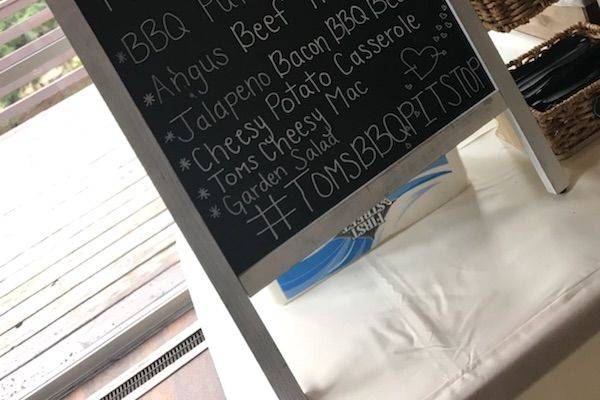 *BBQ
*Angus Beef
*Jalapeno Bacon BBQ
*Cheesy Potato Casserole
*Toms Cheesy Mac
*Garden Salad
#TOMSBBQPITSTOP
FIRST
STREET